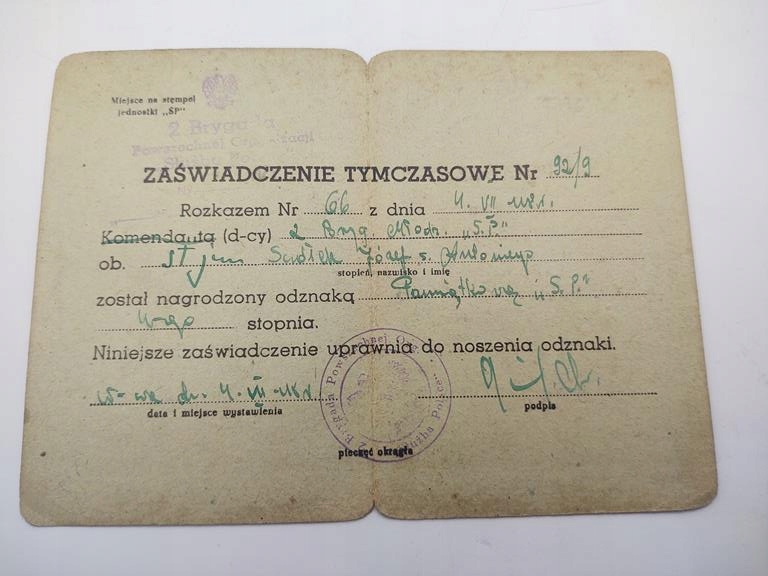 Miejsce na stempel
jednostki „SP"
2 Brygada
Powszechnej Organizacji
ZAŚWIADCZENIE TYMCZASOWE Nr 92/9
Rozkazem Nr 66 z dnia 4. VII 48 r.
Komendanta (d-cy) 2 Bryg. Młodz. „S.P"
ob. Józef s. Antoniego
stopień, nazwisko i imię
został nagrodzony odznaką Pamiątkową „S.P."
stopnia.
Niniejsze zaświadczenie uprawnia do noszenia odznaki.
W-wa dn. 4. VII 48 r.
data i miejsce wystawienia
podpis
Brygada Powszechnej Org. Służba Polsce
pieczęć okrągła